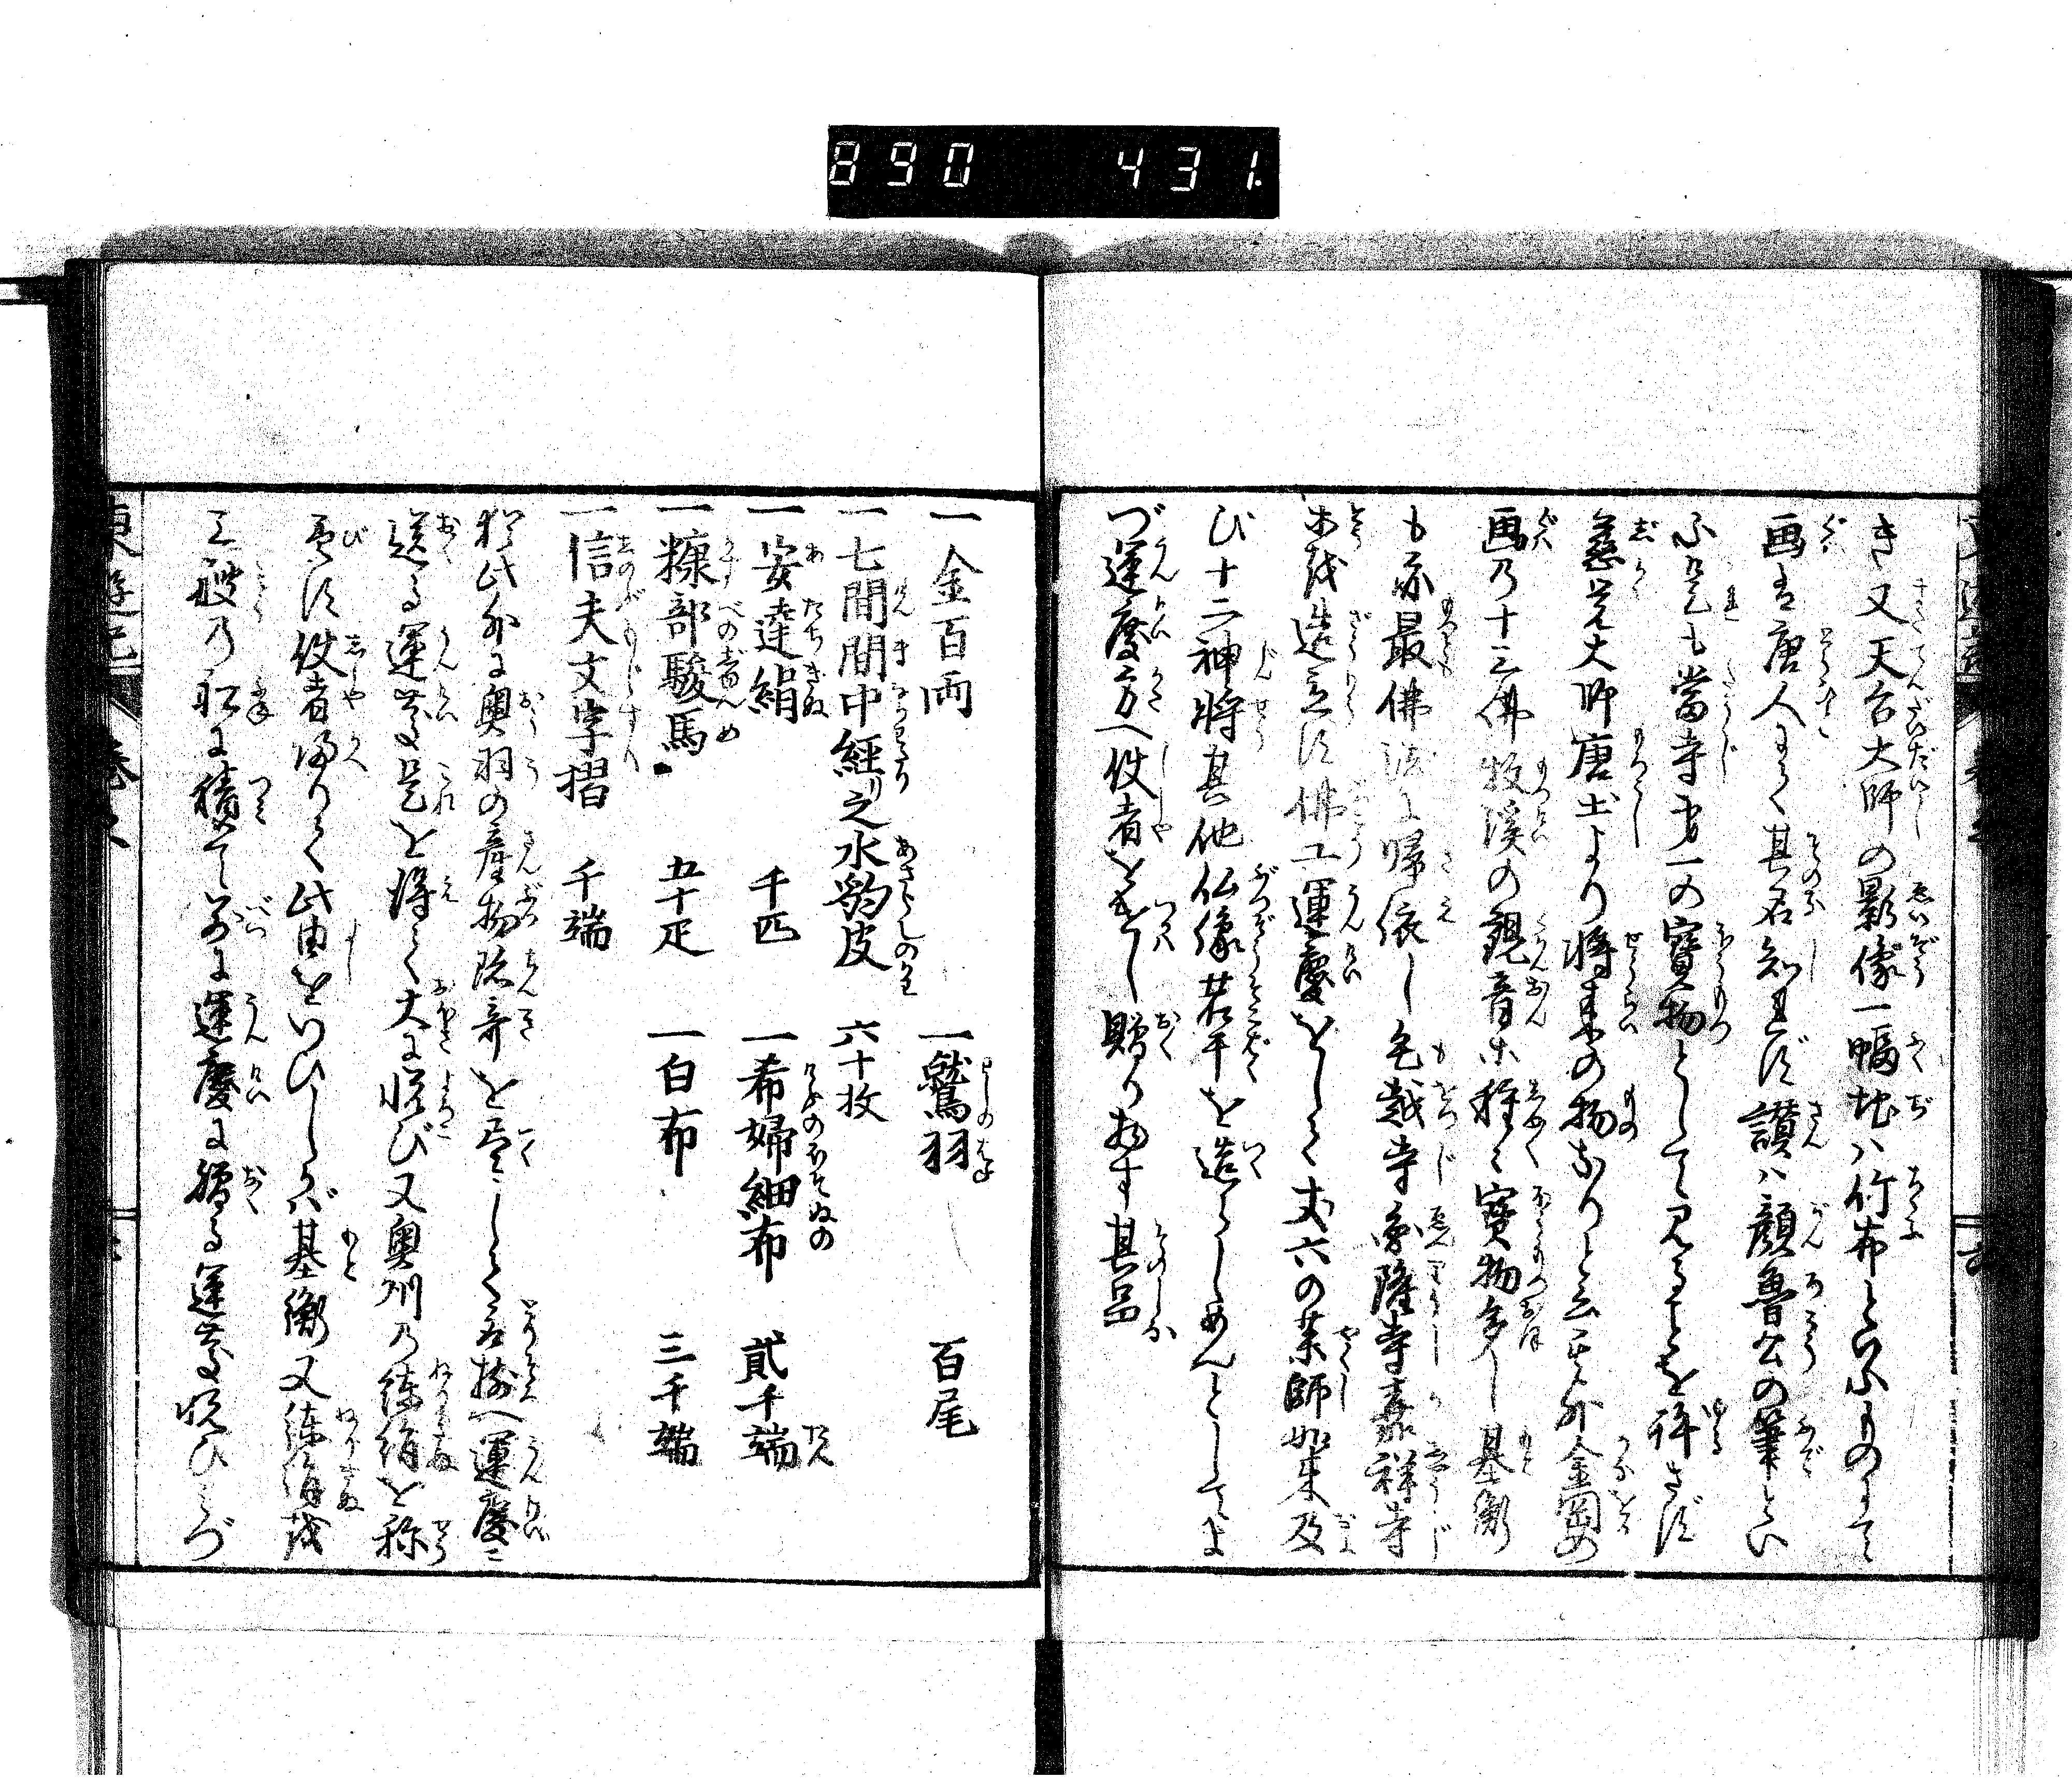 890 431.
き又天台大師の影像一幅地ハ竹布といふものにて
画は唐人にて其名知れず讃ハ顔魯公の筆とい
ふ是も當寺第一の寳物として見ることを許さず
慈覚大師唐土より将来の物なりと云其外金岡の
画の十三佛牧溪の觀音等種々寳物多し基衡
も亦最佛法に帰依し毛越寺圓隆寺嘉祥寺
等を造立す佛工運慶をして丈六の薬師如来及
び十二神将其他仏像若干を造らしめんとしてま
づ運慶方へ使者をもし贈り物す其品
一金百両
一鷲羽 百尾
一七間間中經り之水豹皮 六十枚
一安達絹 千匹
一希婦細布 貳千端
一糠部駿馬 五十疋
一白布 三千端
一信夫文字摺 千端
猶此外に奥羽の産物珍奇を尽して都へ運慶に
送る運慶是を得て大に悦び又奥州の練絹を称
美す使者帰りて此由をいひしかバ基衡又練絹を
三艘の船に積て別に運慶に贈る運慶悦びまづ
東遊記 巻之